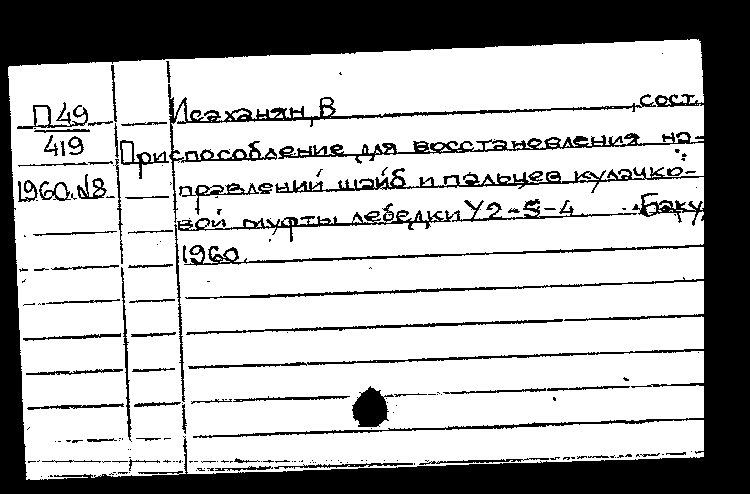 П49
419
1960.N8
Исаханян, В ,сост.
Приспособление для восстановления на-
правлений шайб и пальцев кулачко-
вой муфты лебедки У2-5-4 Баку,
1960.